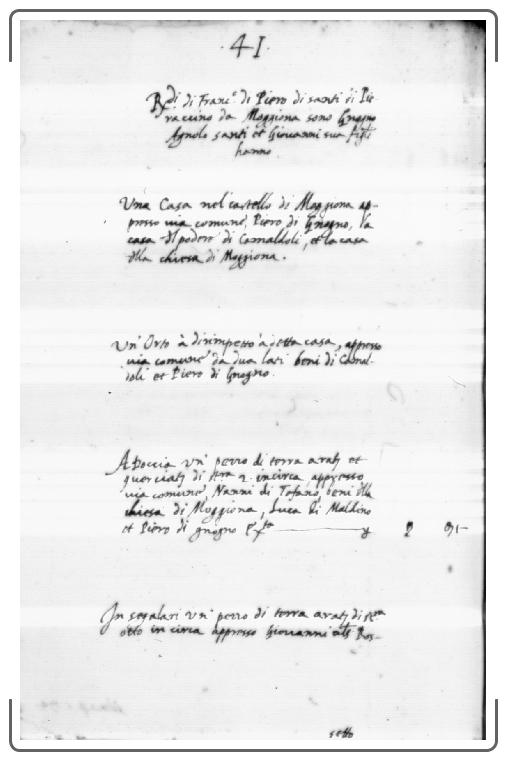 ·41·
Rdi di Franc.o di Piero di santi di Pie-
raccino da Moggiona sono Gnogno
Agnolo santi et Giovanni sua figli
hanno.
Una Casa nel castello di Moggiona ap-
presso via comune, Piero di Gnogno, la
casa del podere di Camaldoli, et la casa
della chiesa di Moggiona.
Un' Orto à dirimpetto à detta casa, appresso
via comune da dua lati beni di Camal-
doli et Piero di Gnogno.
A Doccia un' pezzo di terra et
di 2 in circa appresso
via comune, Nanni di Tofano, beni della
chiesa di Moggiona, Luca di Maldino
et Piero di gnogno
In segalari un' pezzo di terra di
otto in circa appresso Giovanni Bos-
sotto